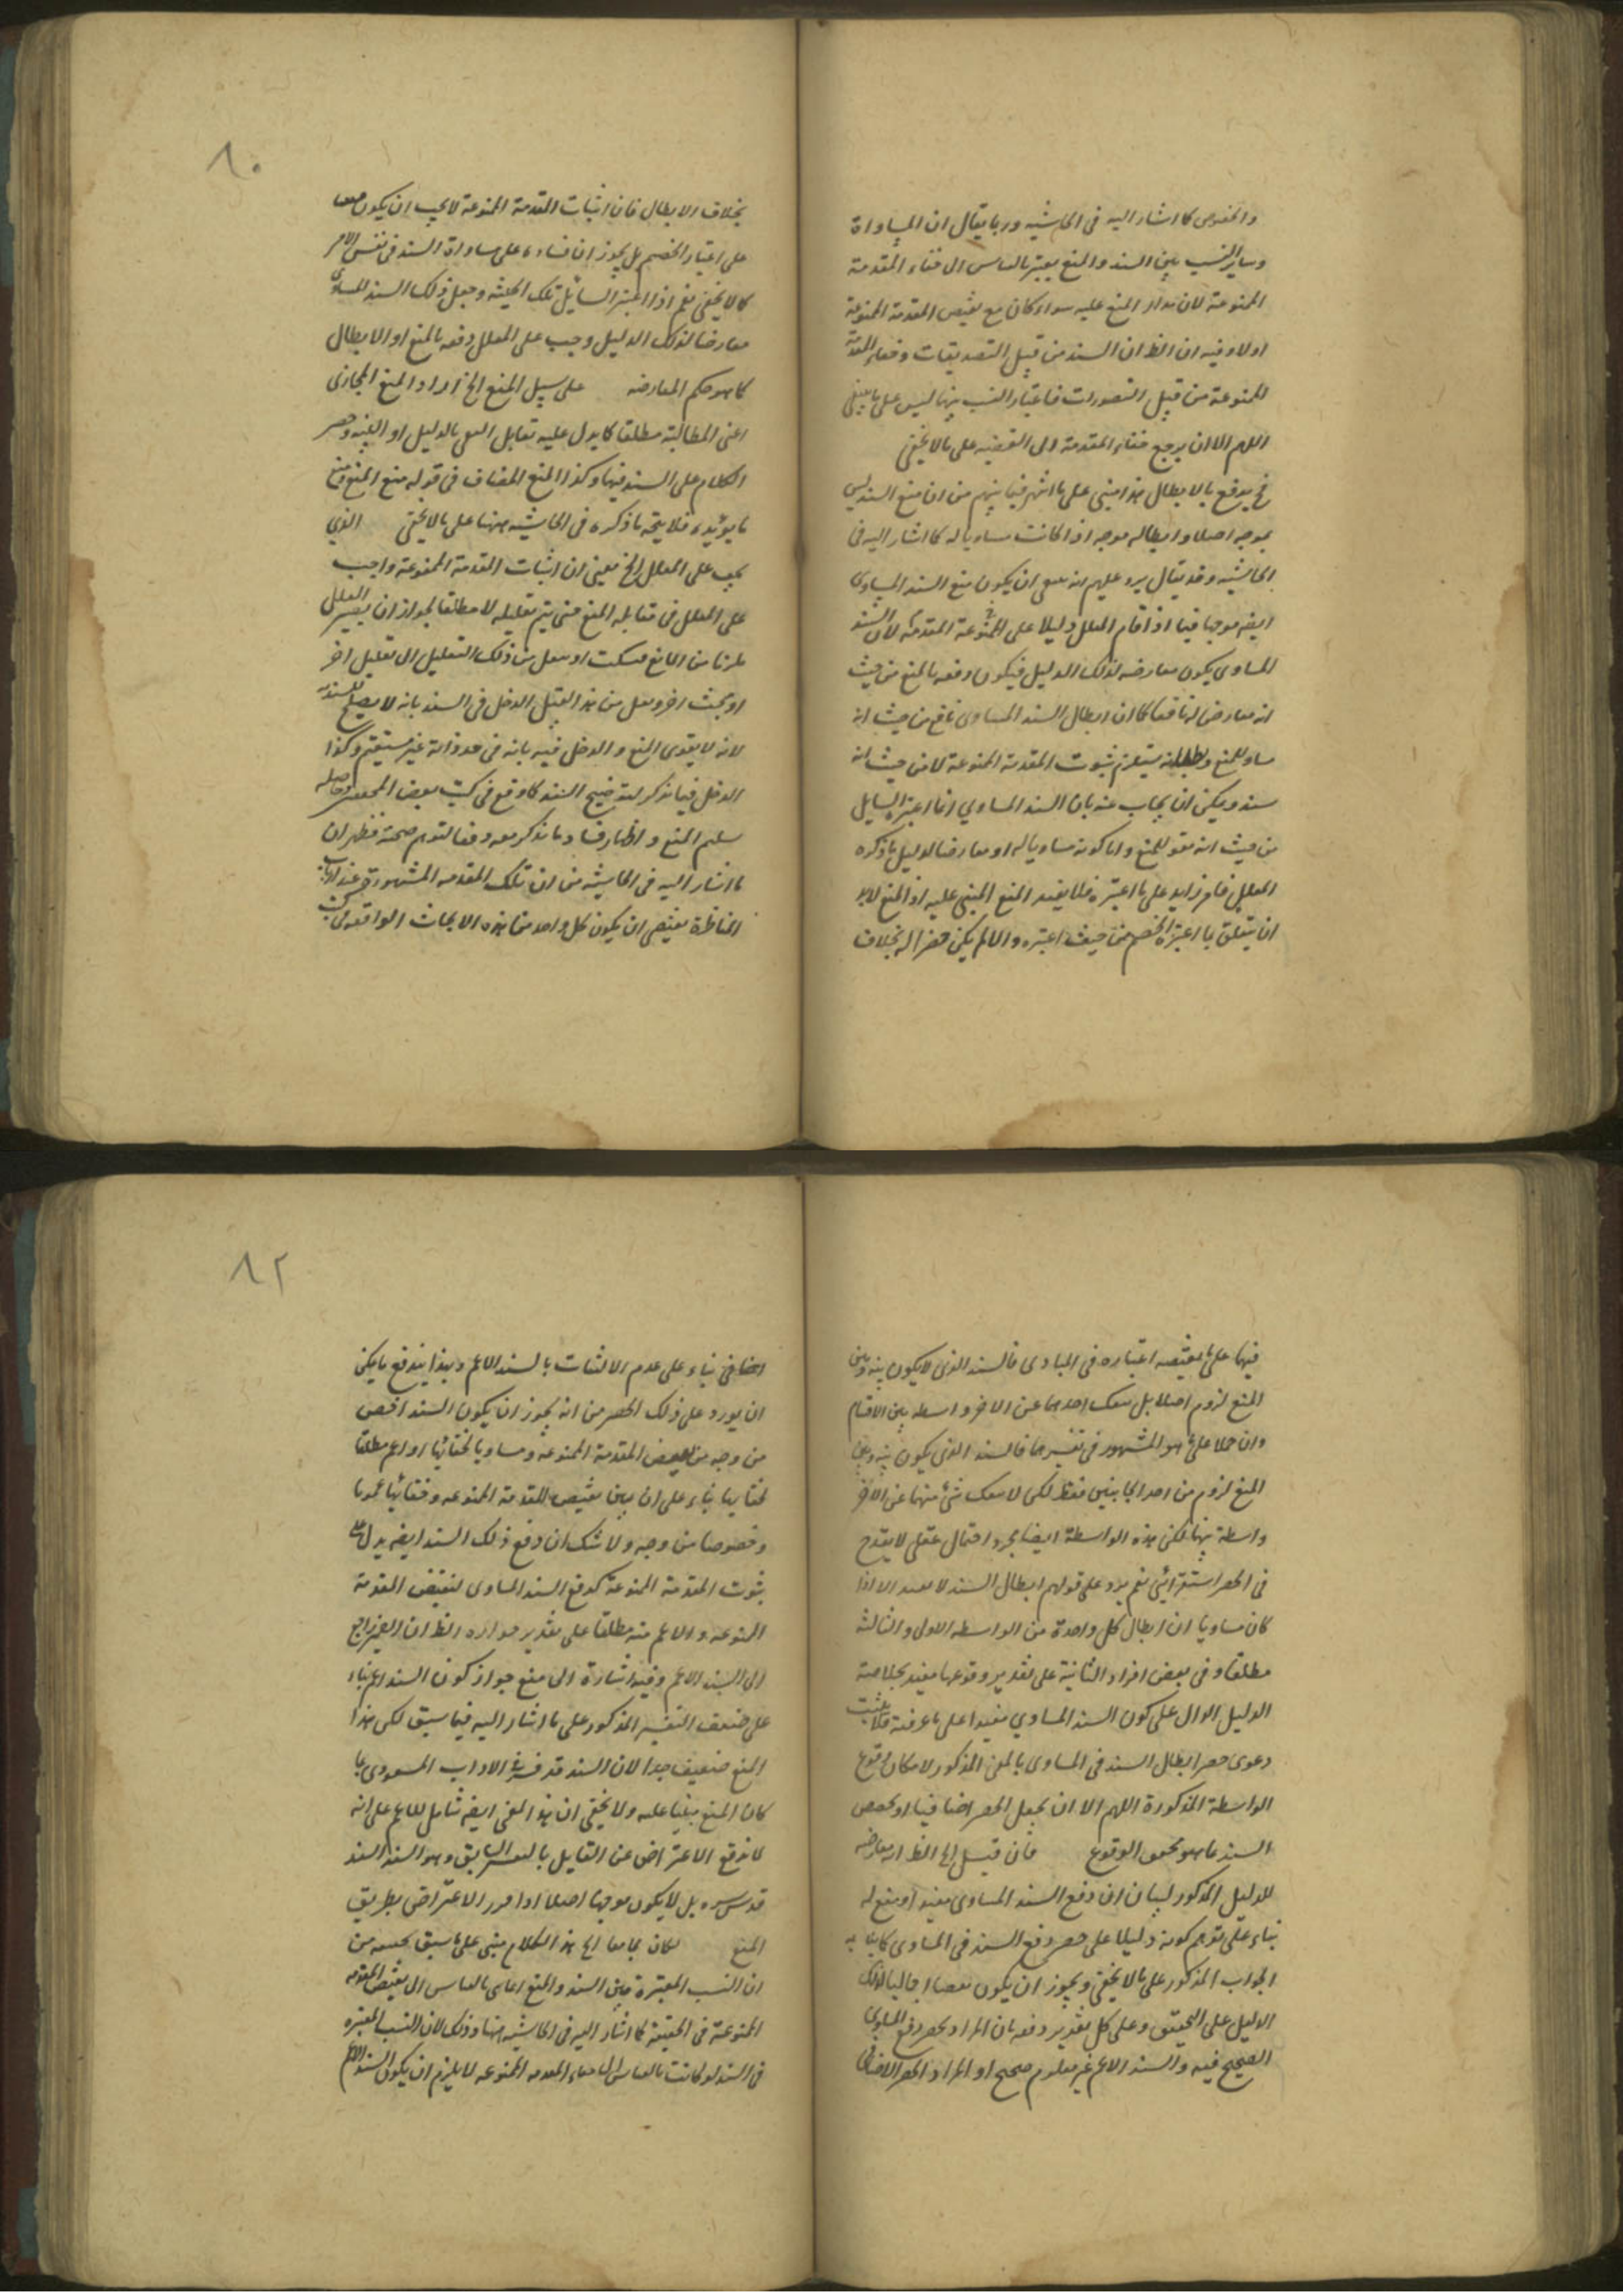 والخصوص كما اشار اليه في الحاشيه وربما يقال ان المساواة
وساير النسب بين السند والمنع يعتبر بالقياس الى خفاء المقدمة
الممنوعة لان مدار المنع عليه سواء كان مع نقيض المقدمة الممنوعة
اولا وفيه ان الظ ان السند من قبيل التصديقات وخفاء المقدمة
الممنوعة من قبيل التصورات فاعتبار النسب بينهما ليس على ما ينبغي
اللهم الا ان يرجع خفاء المقدمة الى القضيه على ما لا يخفى
فح يدفع بالابطال هذا مبني على ما اشتهر فيما بينهم من ان منع السند ليس
بموجه اصلا وابطاله موجه اذا كانت مساويا له كما اشار اليه في
الحاشيه وقد يقال يرد عليهم انه ينبغي ان يكون منع السند المساوي
ايضه موجبا فيما اذا اقام المعلل دليلا على الممنوعة المقدمة لان السند
المساوي يكون معارضه لذلك الدليل فيكون دفعه بالمنع من حيث
انه معارض نافعا كما ان ابطال السند المساوي نافع من حيث انه
مساو للمنع وبطلانه يستلزم ثبوت المقدمة الممنوعة لا من حيث انه
سند ويمكن ان يجاب عنه بان السند المساوي انما اعتبره السايل
من حيث انه مقو للمنع واما كونه مساويا له او معارضا لدليل ما ذكره
المعلل فامر زايد على ما اعتبره فلا يفيد المنع المبني عليه اذ المنع لا بد
ان يتعلق بما اعتبره الخصم من حيث اعتبره والا لم يكن مضرا له بخلاف
٨٠
بخلاف الابطال فان اثبات المقدمة الممنوعة لا يجب ان يكون
على اعتبار الخصم بل يجوز ان بناءه على مساواة السند في نفس الامر
كما لا يخفى نعم اذا اعتبر السائل تلك الحيثيه وجعل ذلك السند المساوي
معارضا لذلك الدليل وجب على المعلل دفعه بالمنع او الابطال
كما هو حكم المعارضه على سبيل المنع الخ اراد المنع المجازي
اعنى المطالبة مطلقا كما يدل عليه تقابل المنع بالدليل او التنبيه وحصر
الكلام على السند فيها وكذا المنع المضاف في قوله منع المنع ومنع
ما يؤيده فلا يتجه ما ذكره في الحاشيه ههنا على ما لا يخفى الذي
يجب على المعلل الخ يعني ان اثبات المقدمة الممنوعة واجب
على المعلل في مقابله المنع حتى يتم تعليله لا مطلقا لجواز ان يصير المعلل
ملزما من المانع فيسكت او ينتقل من ذلك التعليل الى تعليل اخر
او بحث اخر ولعل من هذا القبيل الدخل في السند بانه لا يصلح للسنديه
لانه لا يقوى المنع والدخل فيه بانه في حد ذاته غير مستقيم وكذا
الدخل فيما يذكر لتوضيح السند كما وقع في كتب بعض المحققين وحاصله
سلم المنع واظهار فساد ما يذكر معه دفعا لتوهم صحته فظهر ان
ما اشار اليه في الحاشيه من ان تلك المقدمه المشهورة عند ارباب
المناظرة يقتضي ان يكون كل واحد من هذه الابحاث الواقعه في كتب
فيها على ما يقتضيه اعتباره في المبادي فالسند الذي لا يكون بينه وبين
المنع لزوم اصلا بل ينفك احدهما عن الاخر واسطه بين الاقسام
وان حملا على ما هو المشهور في تفسيرهما فالسند الذي يكون بينه وبين
المنع لزوم من احد الجانبين فقط لكن لا ينفك شئ منهما عن الاخر
واسطة بينها لكن هذه الواسطة ايضا مجرد احتمال عقلي لا يقدح
في الحصر استقرائي نعم يرد على قولهم ابطال السند لا يفيد الا اذا
كان مساويا ان ابطال كل واحدة من الواسطه الاولى والثالثة
مطلقا وفي بعض افراد الثانية على تقدير وقوعها مفيد بخلاصة
الدليل الدال على كون السند المساوي مفيدا على ما عرفته فلا يثبت
دعوى حصر ابطال السند في المساوي بالمعنى المذكور لامكان وقوع
الواسطة المذكورة اللهم الا ان يجعل الحصر اضافيا او يخصص
السند بما هو محقق الوقوع فان قيل الخ الظ انه معارضه
للدليل المذكور لبيان ان دفع السند المساوي مفيد او منع له
بناء على توهم كونه دليلا على حصر دفع السند في المساوي كما
الجواب المذكور على ما لا يخفى ويجوز ان يكون نقضا اجماليا لذلك
الدليل على التحقيق وعلى كل تقدير دفعه بان المراد بحصر دفع المساوي
الصحيح فيه والسند الاعم غير معلوم صحيح او المراد الحصر الاضافي
٨٢
اضافي بناء على عدم الالتفات بالسند الاعم وبهذا يندفع ما يمكن
ان يورد على ذلك الحصر من انه يجوز ان يكون السند اخص
من وجه من نقيض المقدمة الممنوعه ومساويا لخفائها او اعم مطلقا
لخفايها بناء على ان بين نقيض المقدمة الممنوعه وخفائها عموما
وخصوصا من وجه ولا شك ان دفع ذلك السند ايضه يدل على
ثبوت المقدمة الممنوعة كدفع السند المساوي لنقيض المقدمة
الممنوعه والاعم منه مطلقا على تقدير جوازه الظ ان الضمير راجع
الى السند الاعم وفيه اشارة الى منع جواز كون السند اعم بناء
على ضعف التفسير المذكور على ما اشار اليه فيما سبق لكن هذا
المنع ضعيف جدا لان السند قد فسر في الاداب المسعودي بما
كان المنع مبنيا عليه ولا يخفى ان هذا المعنى ايضه شامل للاعم على انه
لا يدفع الاعتراض عن القايل بالتفسير السابق وهو السند السند
قدس سره بل لا يكون موجها اصلا اذا قرر الاعتراض بطريق
المنع لكان مجامعا الخ هذا الكلام مبني على ما سبق تحقيقه من
ان النسب المعتبرة بين السند والمنع انما هي بالقياس الى نقيض المقدمه
الممنوعة في الحقيقة كما اشار اليه في الحاشيه ههنا وذلك لان النسب المعتبره
في السند لو كانت بالقياس الى خفاء المقدمه الممنوعه لا يلزم ان يكون السند الاعم